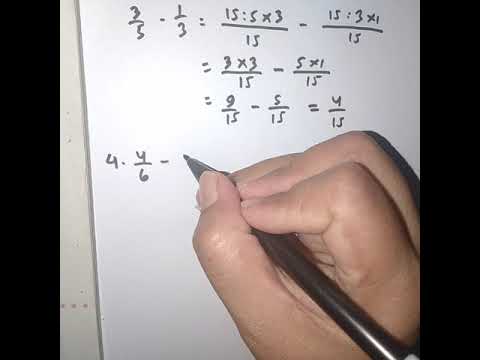 3/5 - 1/3 = 15:5×3/15 - 15:3×1/15
= 3×3/15 - 5×1/15
= 9/15 - 5/15 = 4/15
4. 4/6 -